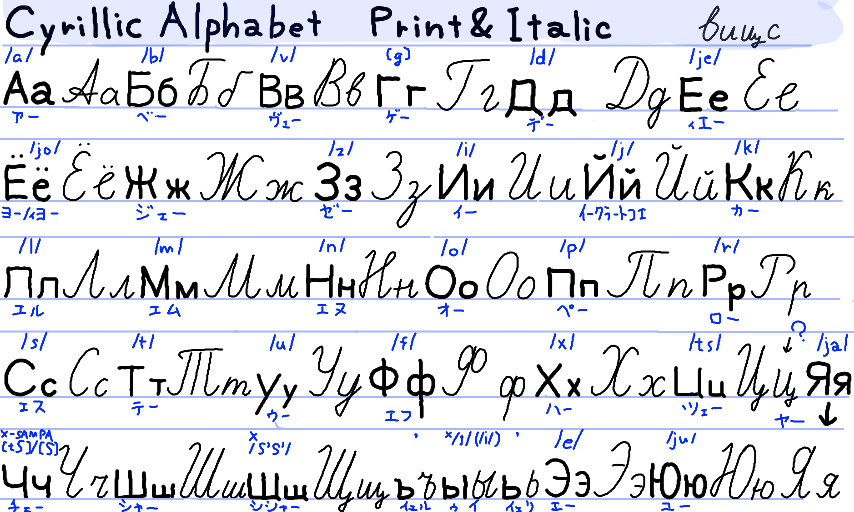 Cyrillic Alphabet Print & Italic вищс
/a/ /b/ /v/ [g] /d/ /je/
Аа Аа Бб Бб Вв Вв Гг Гг Дд Дд Ее Ее
アー ベー ヴェー ゲー デー ィエー
/jo/ /z/ /i/ /j/ /k/
Ёё Ёё Жж Жж Зз Зз Ии Ии Йй Йй Кк Кк
ヨー/ィヨー ジェー ゼー イー カー
/l/ /m/ /n/ /o/ /p/ /r/
Лл Лл Мм Мм Нн Нн Оо Оо Пп Пп Рр Рр
エル エム エヌ オー ペー ロー
/s/ /t/ /u/ /f/ /x/ /ts/ ? /ja/
Сс Сс Тт Тт Уу Уу Фф Фф Хх Хх Цц Цц Яя
エス テー ウー エフ ハー ツェー ヤー
X-SAMPA [tS]/[S] X /S'S'/ X/1/(/i/) /e/ /ju/
Чч Чч Шш Шш Щщ Щщ ъ ъ ы ы ь ь Ээ Ээ Юю Юю Яя
チェー シャー シシャー イェル ゥイ イェリ エー ユー